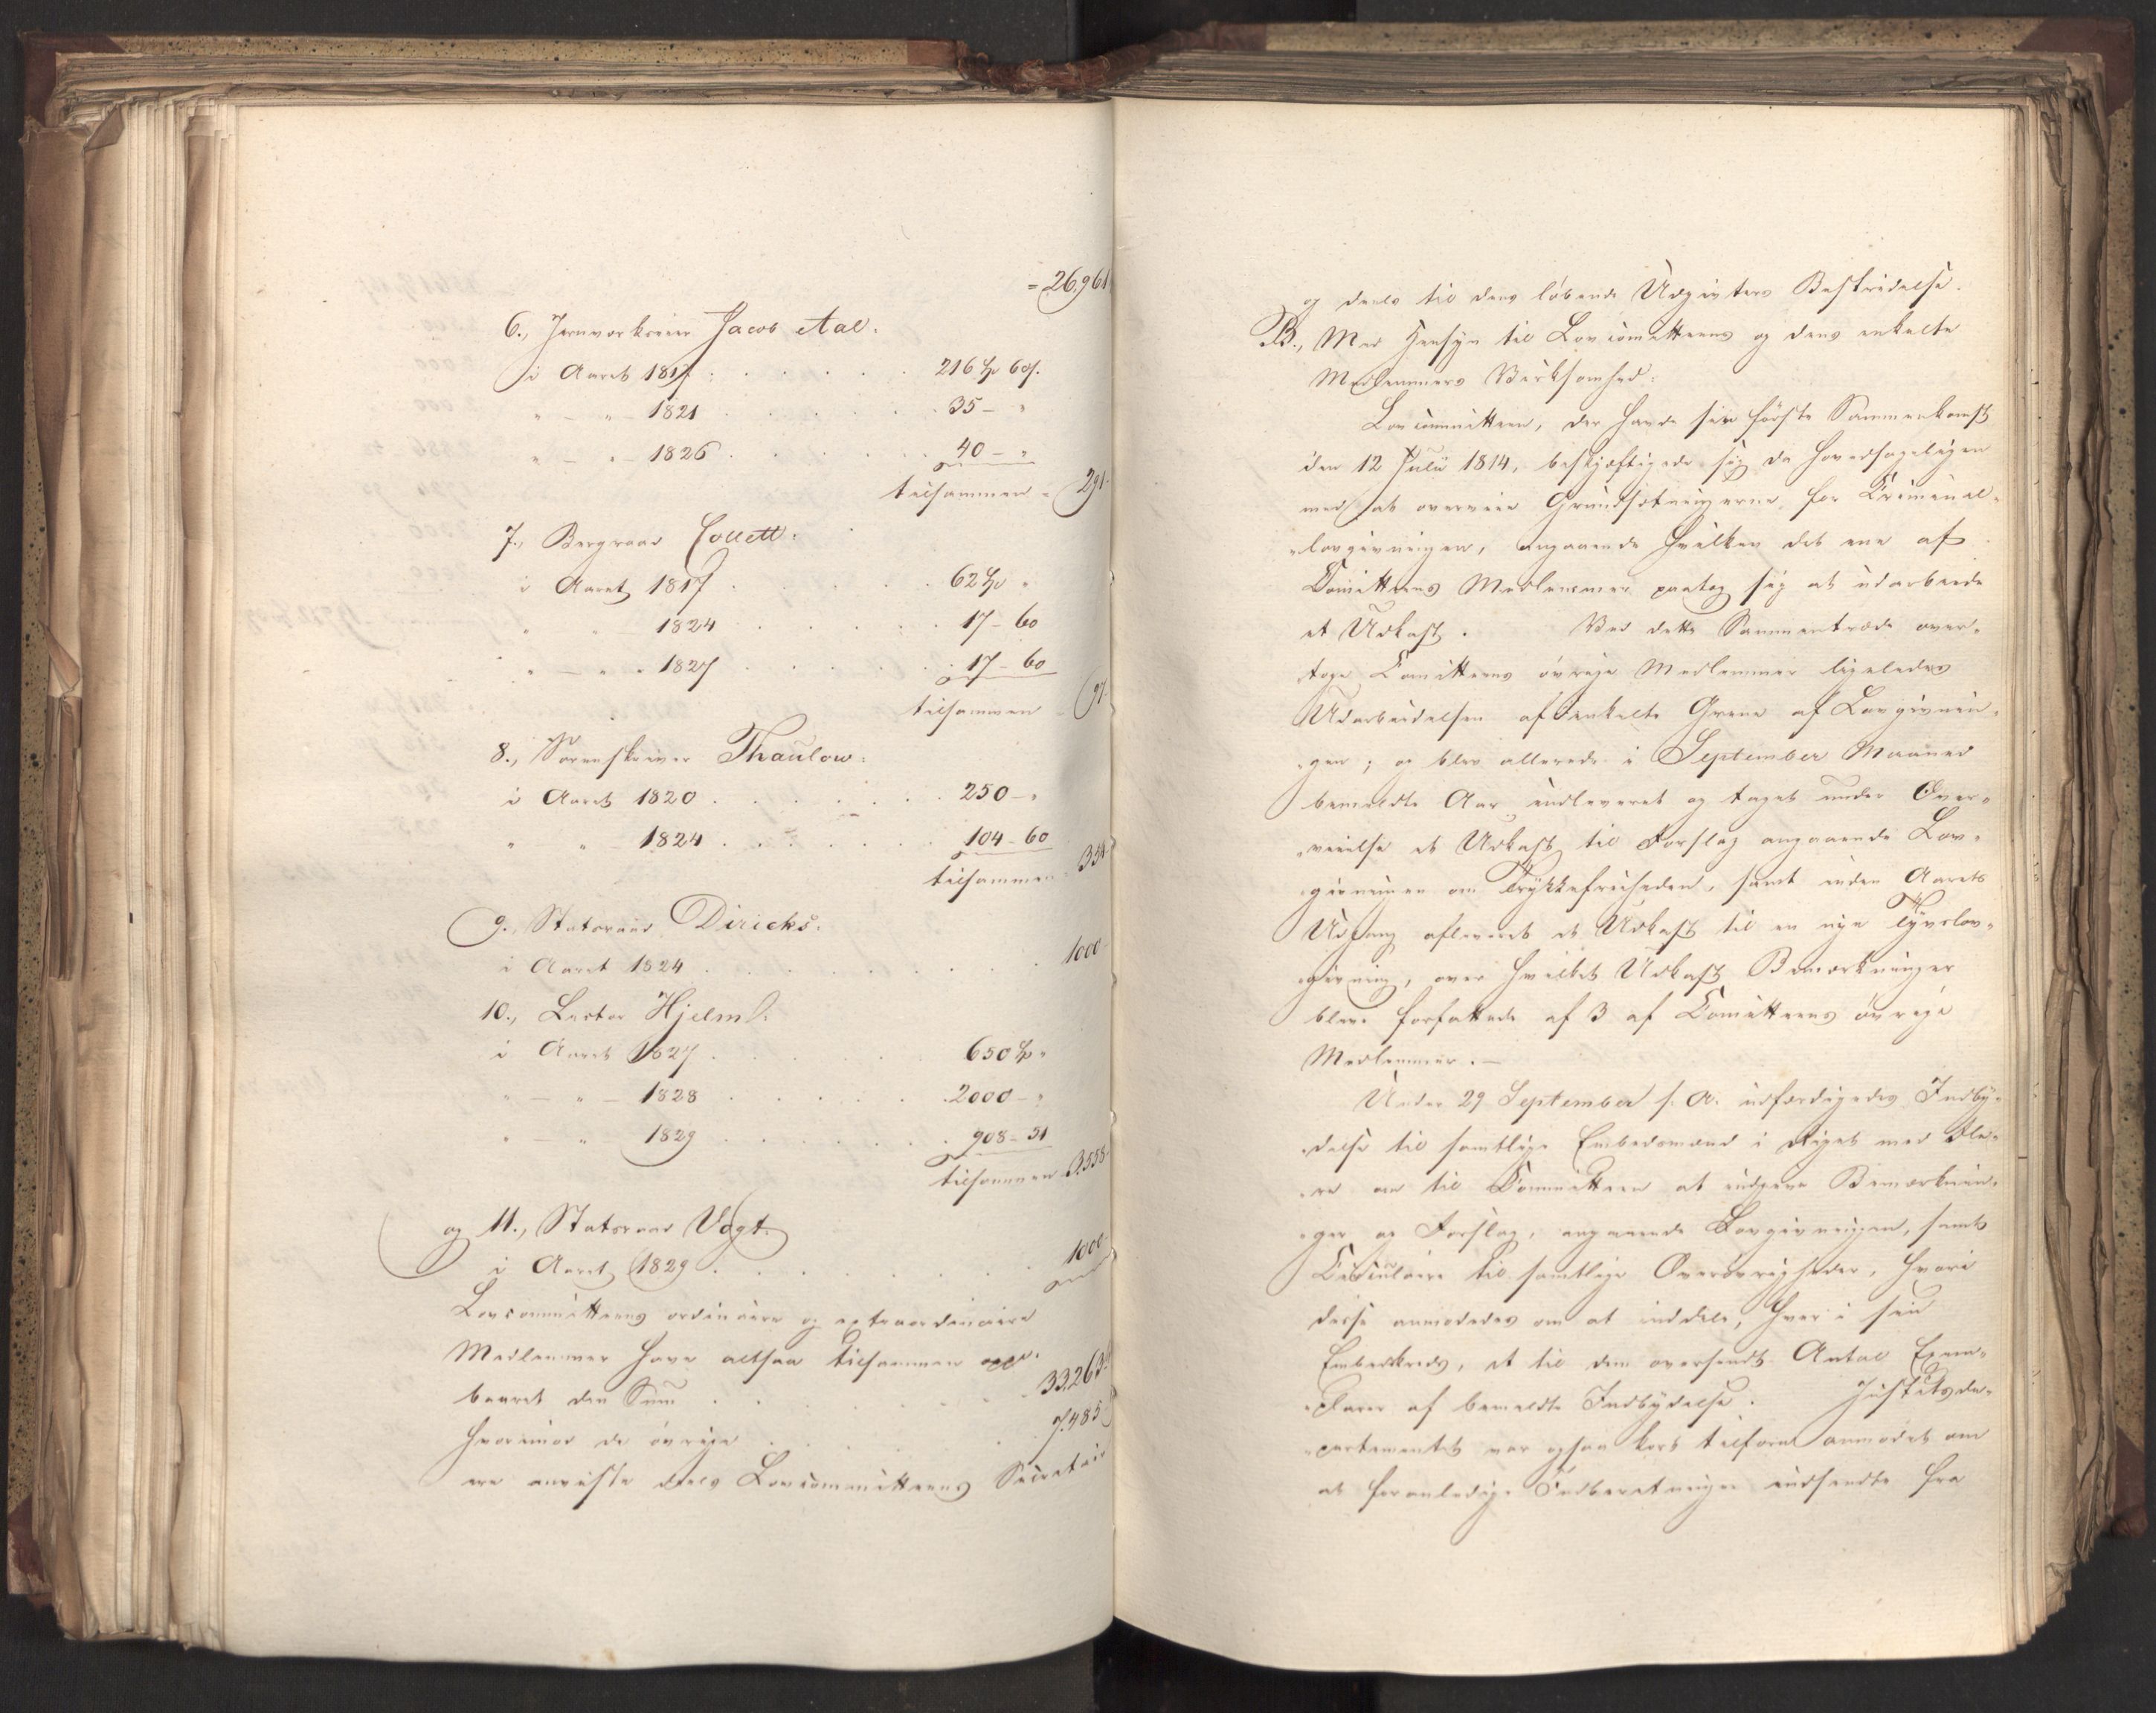 = 26,961
6., Jernværkseier Jacob Aal:
i Aaret 1817 . . . . . . 216 Sp 60 s.
" — " — 1821 . . . . . . 35 — "
" — " — 1826 . . . . . . 40 — "
tilsammen = 291
7., Bergraad Collett:
i Aaret 1817 . . . . . . 62 Sp "
" " 1824 . . . . . . 17 - 60
" — " - 1827 . . . . . . 17 - 60
tilsammen - 97
8., Sorenskriver Thaulow:
i Aaret 1820 . . . . . . 250 — "
" " — 1824 . . . . . . 104 - 60
tilsammen = 354
9., Statsraad Diricks:
i Aaret 1824 . . . . . . 1000
10., Lector Hjelm:
i Aaret 1827 . . . . . . 650 Sp "
" — " — 1828 . . . . . . 2000 — "
" — " 1829 . . . . . . 908 - 51
tilsammen 3,558
og 11., Statsraad Vogt:
i Aaret 1829 . . . . . . 1000
Lovcommitteens ordinaire og extraordinaire
Medlemmer have altsaa tilsammen opp-
baaret den Sum . . . . . . 33,263
hvorimod de øvrige . . . . . . 7,485
ere anviste deels Lovcommitteens Secretair
og deels til dens løbende Udgivters Bestridelse.
B., Med Hensyn til Lovcomitteens og dens enkelte
Medlemmers Virksomhed:
Lovcommitteen, der havde sin første Sammenkomst
den 12 Julii 1814, beskjæftigede sig da hovedsageligen
med at overveie Grundsætningerne for Criminal-
lovgivningen, angaaende hvilken det ene af
Comitteens Medlemmer paatog sig at udarbeide
et Udkast. Ved dette Sammentræde over-
toge Comitteens øvrige Medlemmer ligeledes
Udarbeidelsen af enkelte Grene af Lovgivnin-
gen; og blev allerede i September Maaned
bemeldte Aar indleveret og taget under Over-
veielse et Udkast til Forslag angaaende Lov-
givningen om Trykkefriheden, samt inden Aarets
Udgang afleveret et Udkast til en nye Tyvslov-
givning, over hvilket Udkast Bemærkninger
bleve forfattede af 3 af Comitteens øvrige
Medlemmer. —
Under 29 September s. A. udfærdigedes Indby-
delse til samtlige Embedsmænd i Riget med Fle-
re om til Committeen at indgive Bemærknin-
ger og Forslag, angaaende Lovgivningen, samt
Circulaire til samtlige Overøvrigheder, hvori
disse anmodedes om at inddele, hver i sin
Embedkreds, et til dem oversendt Antal Exem-
plarer af bemeldte Indbydelse. Justitsde-
partementet var ogsaa kort tilforn anmodet om
at foranledige Indberetninger indsendte fra